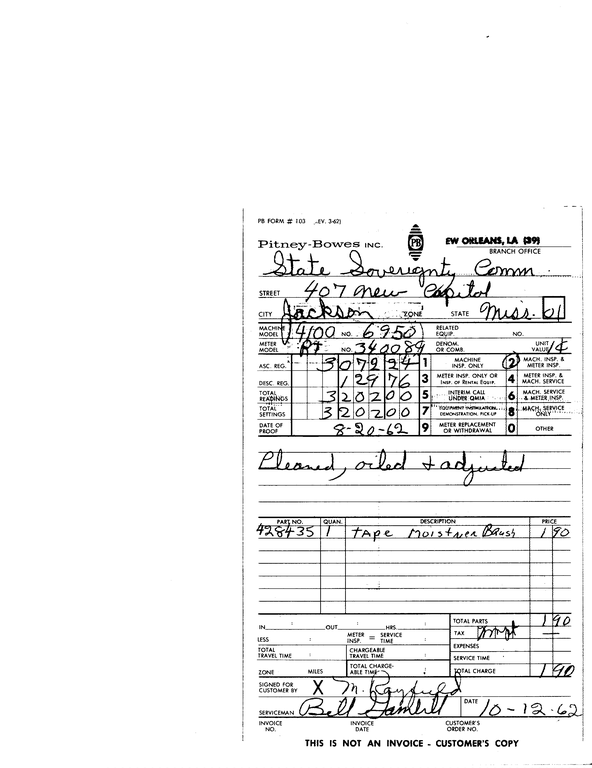 PB FORM # 103 EV. 3-62)
Pitney-Bowes INC. PB EW ORLEANS, LA (39)
BRANCH OFFICE
State Sovereignty Comm
STREET 407 New Capitol
CITY Jackson ZONE STATE Miss. 61
MACHINE MODEL 4100 NO. 6950 RELATED EQUIP. NO.
METER MODEL RT NO. 340089 DENOM. OR COMB. UNIT VALUE 1¢
ASC. REG. 307224 1 MACHINE INSP. ONLY 2 MACH. INSP. & METER INSP.
DESC. REG. 12976 3 METER INSP. ONLY OR INSP. OF RENTAL EQUIP. 4 METER INSP. & MACH. SERVICE
TOTAL READINGS 320200 5 INTERIM CALL UNDER QMIA 6 MACH. SERVICE & METER INSP.
TOTAL SETTINGS 320200 7 EQUIPMENT INSTALLATION, DEMONSTRATION, PICK-UP 8 MACH. SERVICE ONLY
DATE OF PROOF 8-20-62 9 METER REPLACEMENT OR WITHDRAWAL 0 OTHER
Cleaned, oiled + adjusted
PART NO. QUAN. DESCRIPTION PRICE
428435 1 tape Moistner Brush 1 90
IN : OUT : HRS. : TOTAL PARTS 1 90
LESS : METER INSP. = SERVICE TIME : TAX —
TOTAL TRAVEL TIME : CHARGEABLE TRAVEL TIME : EXPENSES
SERVICE TIME
ZONE MILES TOTAL CHARGE-ABLE TIME : TOTAL CHARGE 1 90
SIGNED FOR CUSTOMER BY X M. Rayfield
SERVICEMAN Bill Gambrell DATE 10-12-62
INVOICE NO. INVOICE DATE CUSTOMER'S ORDER NO.
THIS IS NOT AN INVOICE - CUSTOMER'S COPY